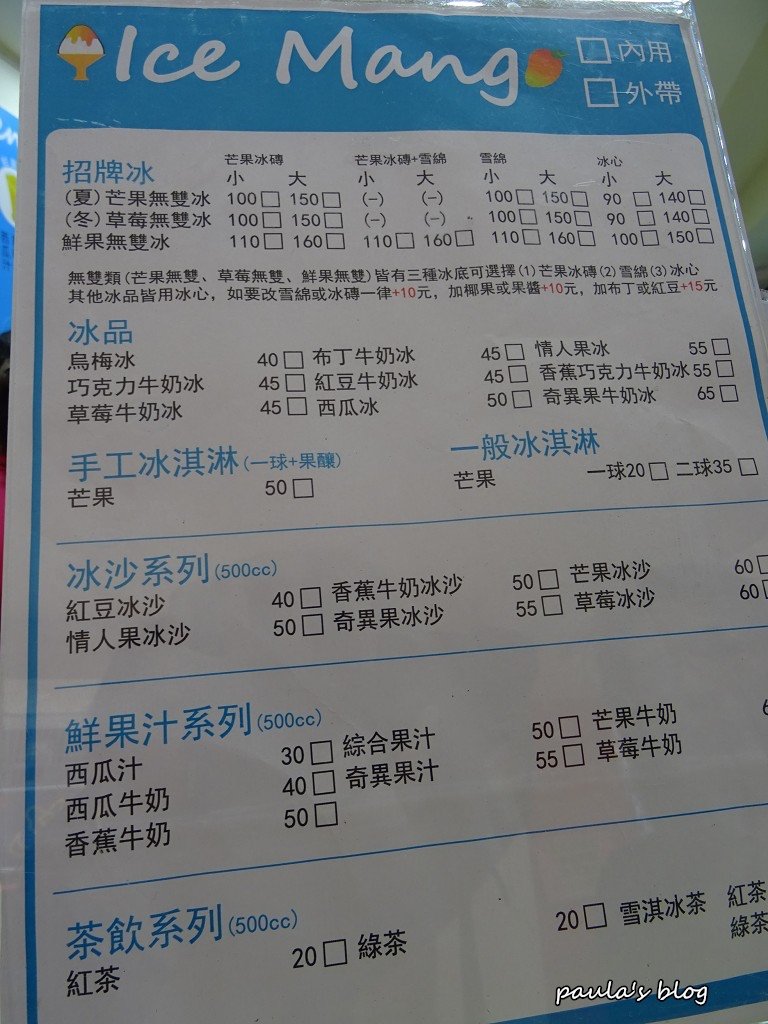 Ice Mango
□ 內用
□ 外帶
芒果冰磚 芒果冰磚+雪綿 雪綿 冰心
招牌冰 小 大 小 大 小 大 小 大
(夏)芒果無雙冰 100□ 150□ (—) (—) 100□ 150□ 90 □ 140□
(冬)草莓無雙冰 100□ 150□ (—) (—) 100□ 150□ 90 □ 140□
鮮果無雙冰 110□ 160□ 110□ 160□ 110□ 160□ 100□ 150□
無雙類(芒果無雙、草莓無雙、鮮果無雙)皆有三種冰底可選擇(1)芒果冰磚(2)雪綿(3)冰心
其他冰品皆用冰心，如要改雪綿或冰磚一律+10元，加椰果或果醬+10元，加布丁或紅豆+15元
冰品
烏梅冰 40□ 布丁牛奶冰 45□ 情人果冰 55□
巧克力牛奶冰 45□ 紅豆牛奶冰 45□ 香蕉巧克力牛奶冰 55□
草莓牛奶冰 45□ 西瓜冰 50□ 奇異果牛奶冰 65□
手工冰淇淋(一球+果釀) 一般冰淇淋
芒果 50□ 芒果 一球20□ 二球35□
冰沙系列(500cc)
紅豆冰沙 40□ 香蕉牛奶冰沙 50□ 芒果冰沙 60□
情人果冰沙 50□ 奇異果冰沙 55□ 草莓冰沙 60□
鮮果汁系列(500cc)
西瓜汁 30□ 綜合果汁 50□ 芒果牛奶
西瓜牛奶 40□ 奇異果汁 55□ 草莓牛奶
香蕉牛奶 50□
茶飲系列(500cc)
紅茶 20□ 綠茶 20□ 雪淇冰茶 紅茶
綠茶
paula's blog